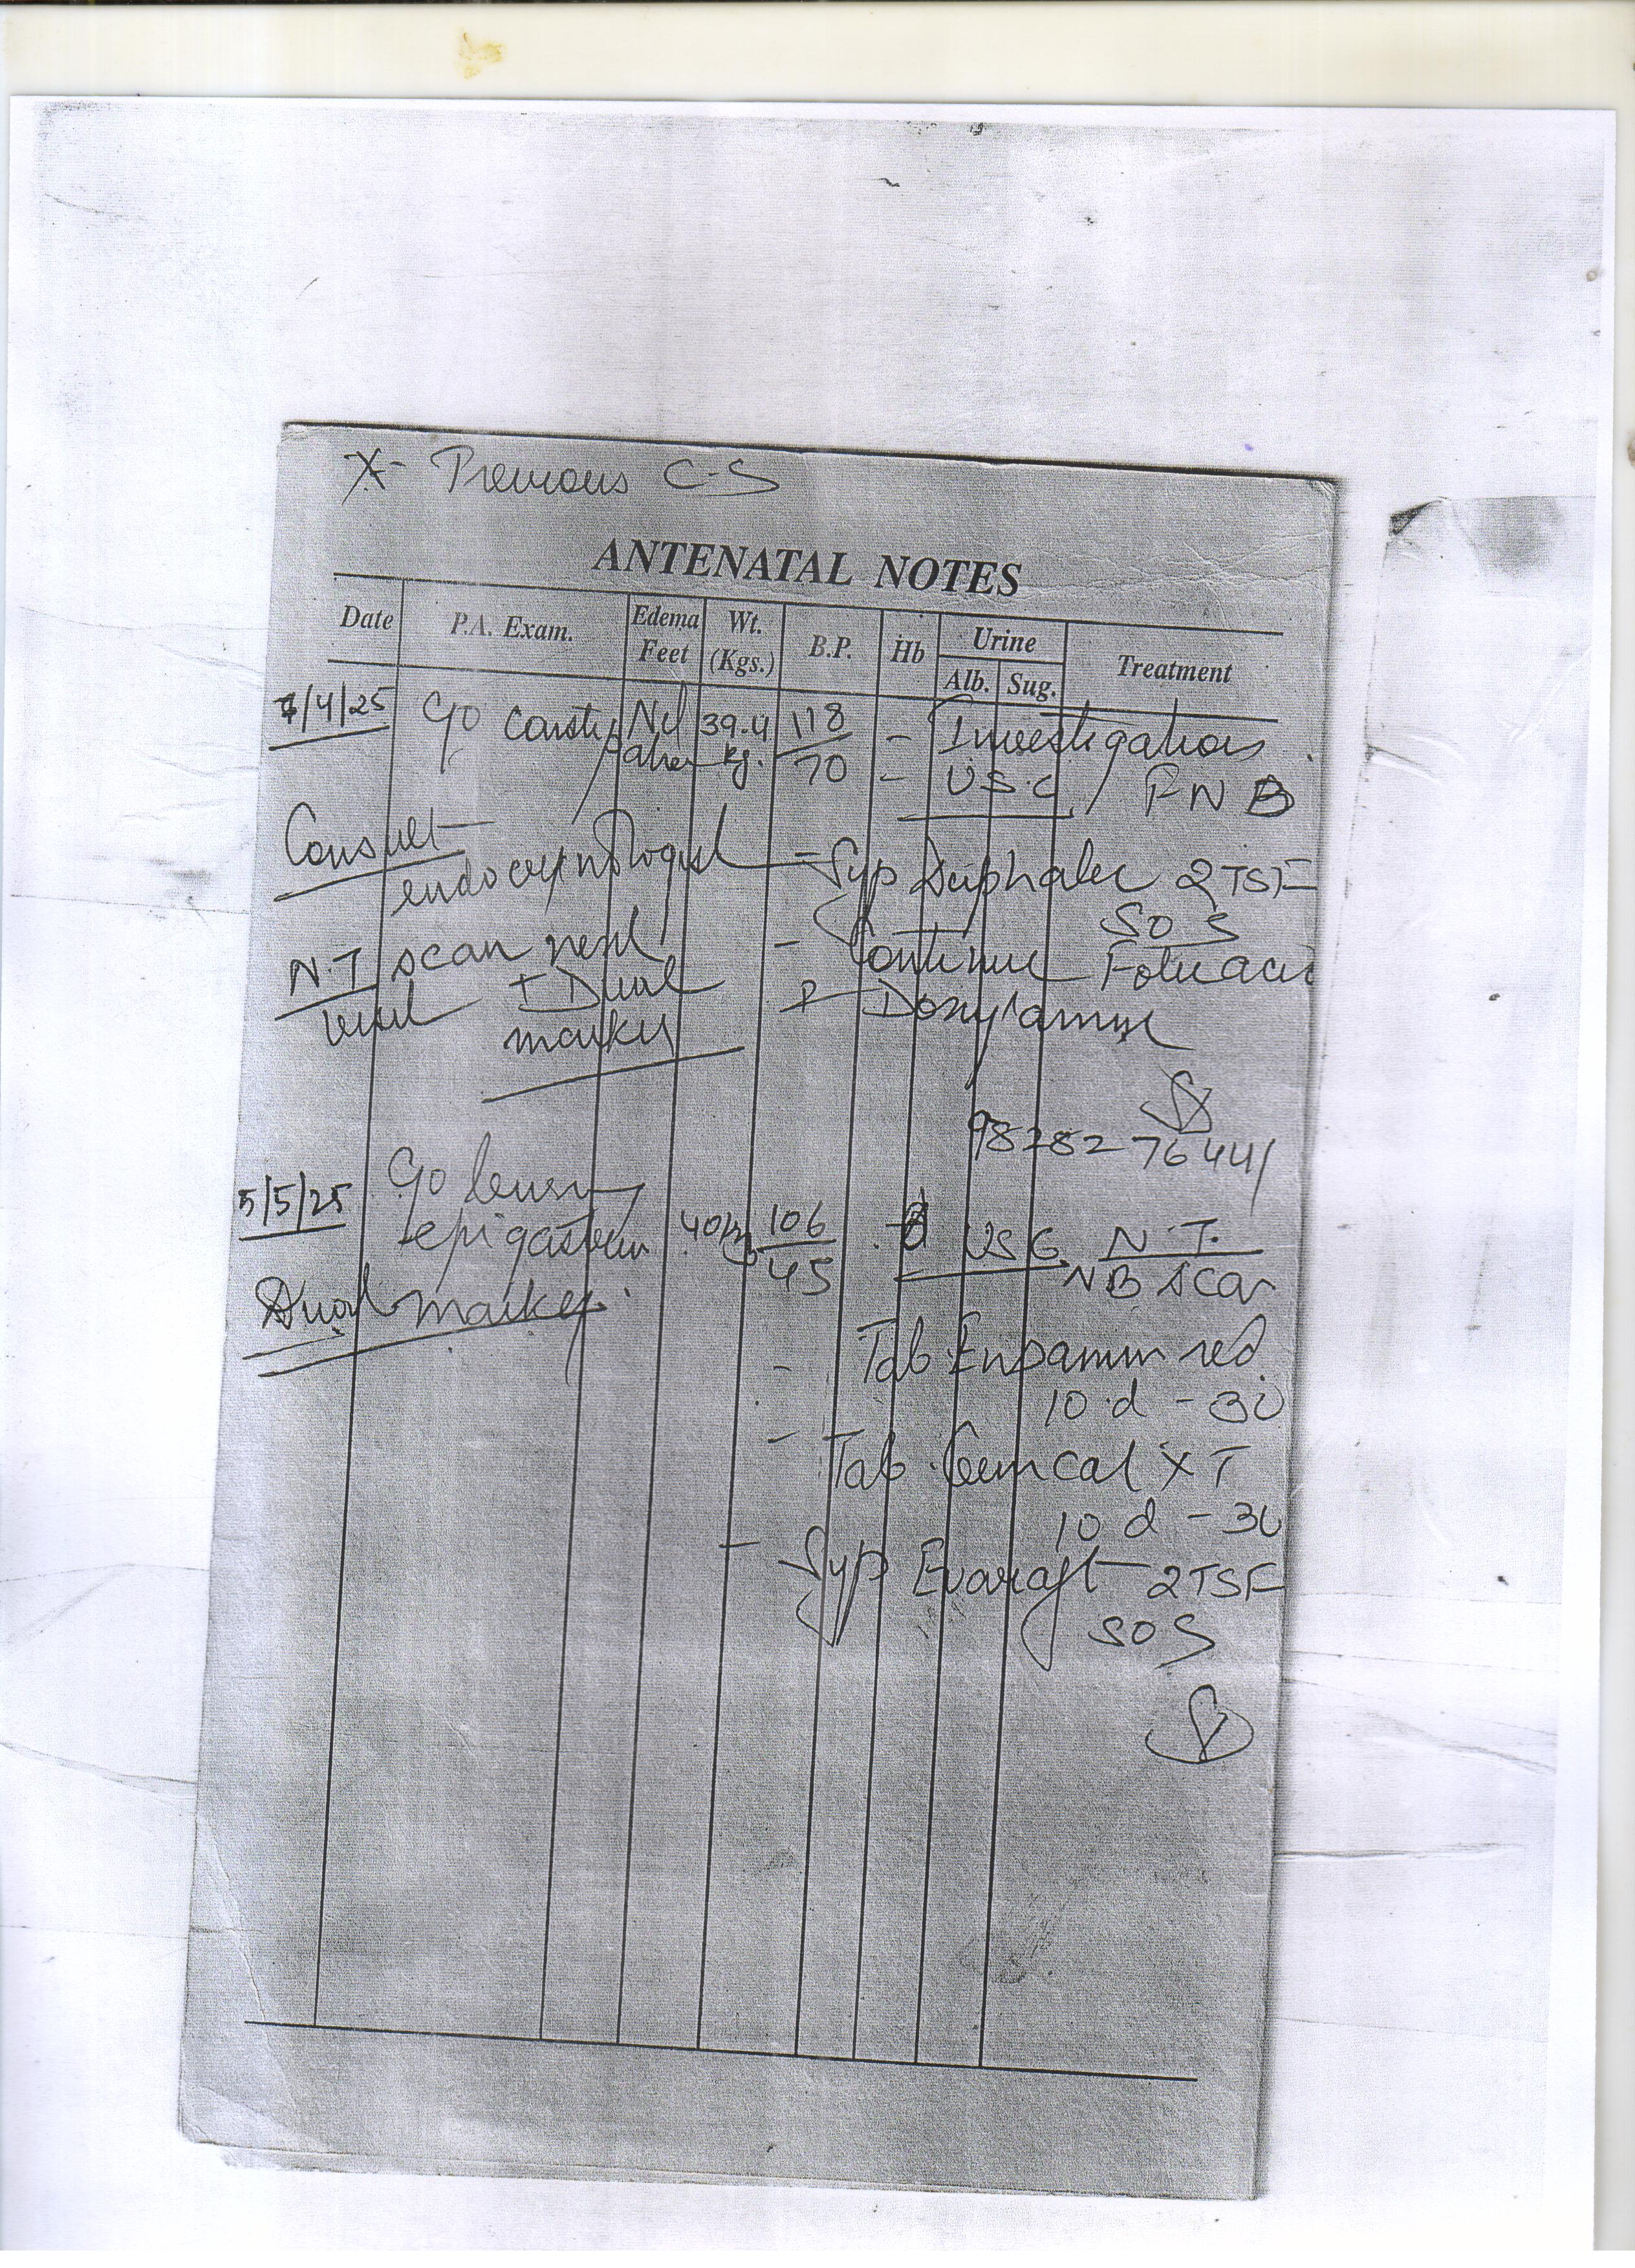 X- Previous C-S
ANTENATAL NOTES
Date P.A. Exam. Edema Feet Wt. (Kgs.) B.P. Hb Urine Alb. Sug. Treatment
/4/25 C/o Constipation Nil 39.4 kg. 118/70 - Investigations
- USG / FNB
Consult endocrynologist
- Syp Duphalac 2TSF
SOS
N.T scan next visit + Dual marker
- Continue Folic acid
& Doxylamine
98282 76441
5/5/25 C/o
epigastrium 40kg 106/45 USG N.T.
NB scan
Dual marker
- Tab red
10 d - 30
- Tab Gemcal XT
10 d - 30
- Syp 2TSF
SOS